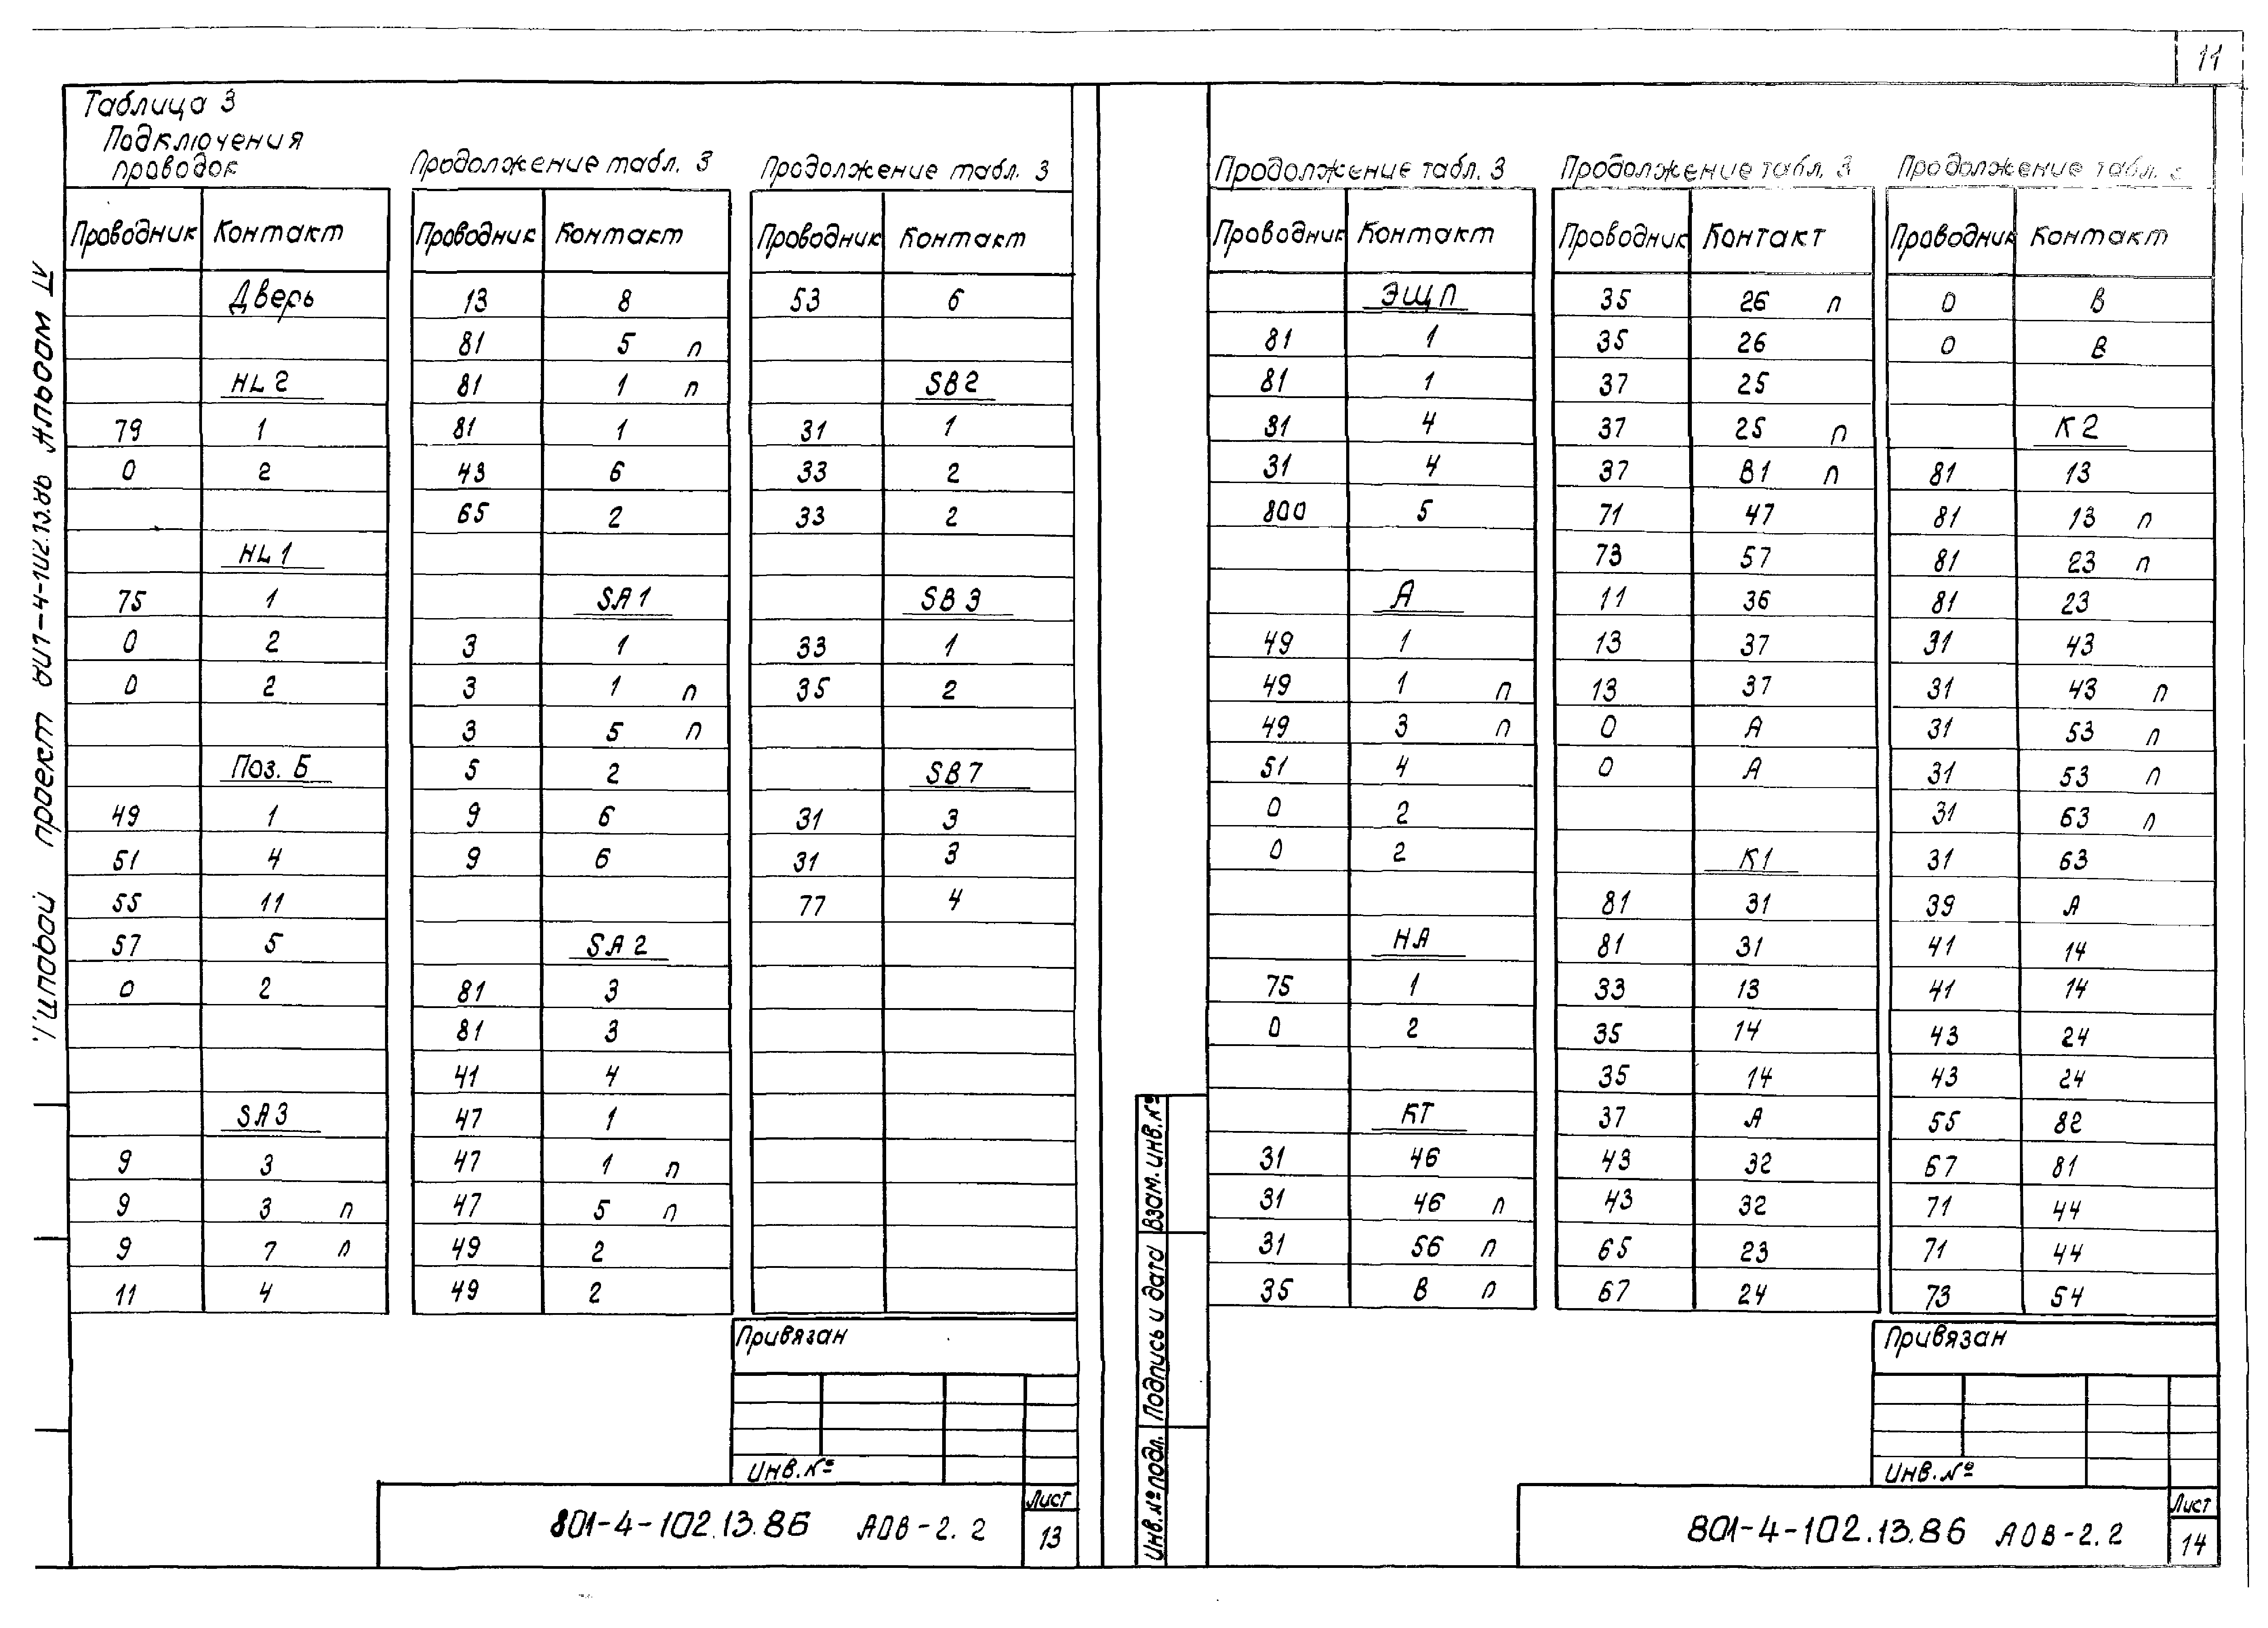 11
Типовой проект 801-4-102.13.86 Альбом IV
Таблица 3
Подключения
проводок
Проводник Контакт
Дверь
HL2
79 1
0 2
HL1
75 1
0 2
0 2
Поз. Б
49 1
51 4
55 11
57 5
0 2
SA3
9 3
9 3 п
9 7 п
11 4
Продолжение табл. 3
Проводник Контакт
13 8
81 5 п
81 1 п
81 1
43 6
65 2
SA1
3 1
3 1 п
3 5 п
5 2
9 6
9 6
SA2
81 3
81 3
41 4
47 1
47 1 п
47 5 п
49 2
49 2
Продолжение табл. 3
Проводник Контакт
53 6
SB2
31 1
33 2
33 2
SB3
33 1
35 2
SB7
31 3
31 3
77 4
Привязан
Инв.№
801-4-102.13.86 АОВ-2.2
Лист
13
Продолжение табл. 3
Проводник Контакт
ЭЩП
81 1
81 1
31 4
31 4
800 5
А
49 1
49 1 п
49 3 п
51 4
0 2
0 2
НА
75 1
0 2
КТ
31 46
31 46 п
31 56 п
35 В п
Продолжение табл. 3
Проводник Контакт
35 26 п
35 26
37 25
37 25 п
37 В1 п
71 47
73 57
11 36
13 37
13 37
0 А
0 А
К1
81 31
81 31
33 13
35 14
35 14
37 А
43 32
43 32
65 23
67 24
Продолжение табл.
Проводник Контакт
0 В
0 В
К2
81 13
81 13 п
81 23 п
81 23
31 43
31 43 п
31 53 п
31 53 п
31 63 п
31 63
39 А
41 14
41 14
43 24
43 24
55 82
67 81
71 44
71 44
73 54
Взам.инв.№
Подпись и дата
Инв.№подл.
Привязан
Инв.№
801-4-102.13.86 АОВ-2.2
Лист
14